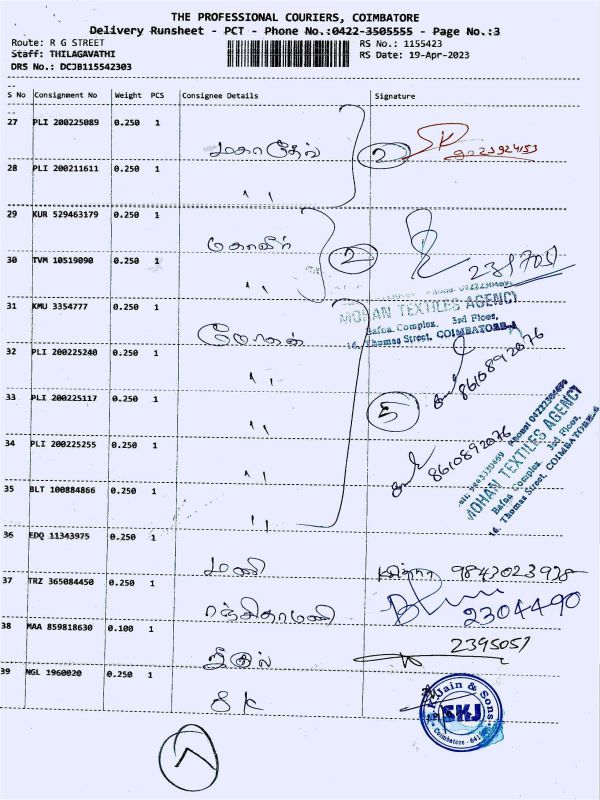 THE PROFESSIONAL COURIERS, COIMBATORE
Delivery Runsheet - PCT - Phone No.:0422-3505555 - Page No.:3
Route: R G STREET RS No.: 1155423
Staff: THILAGAVATHI RS Date: 19-Apr-2023
DRS No.: DCJB115542303
S No Consignment No Weight PCS Consignee Details Signature
27 PLI 200225089 0.250 1
மகாதேவ் 2 SK
28 PLI 200211611 0.250 1
" 
29 KUR 529463179 0.250 1
2
30 TVM 10519090 0.250 1
"
31 KMU 3354777 0.250 1
மோகன் MOHAN TEXTILES AGENCY
Bafna Complex, 3rd Floor,
16, Thomas Street, COIMBATORE-1
32 PLI 200225240 0.250 1
" 8610892076
33 PLI 200225117 0.250 1
" 5
34 PLI 200225255 0.250 1
" 8610892076
MOHAN TEXTILES AGENCY
Bafna Complex, 3rd Floor,
16, Thomas Street, COIMBATORE-1
35 BLT 100884866 0.250 1
"
36 EDQ 11343975 0.250 1
மணி 9843023938
37 TRZ 365084450 0.250 1
2304490
38 MAA 859818630 0.100 1
2395051
39 NGL 1960020 0.250 1
SK
Jain & Sons
SKJ
Coimbatore - 641
7